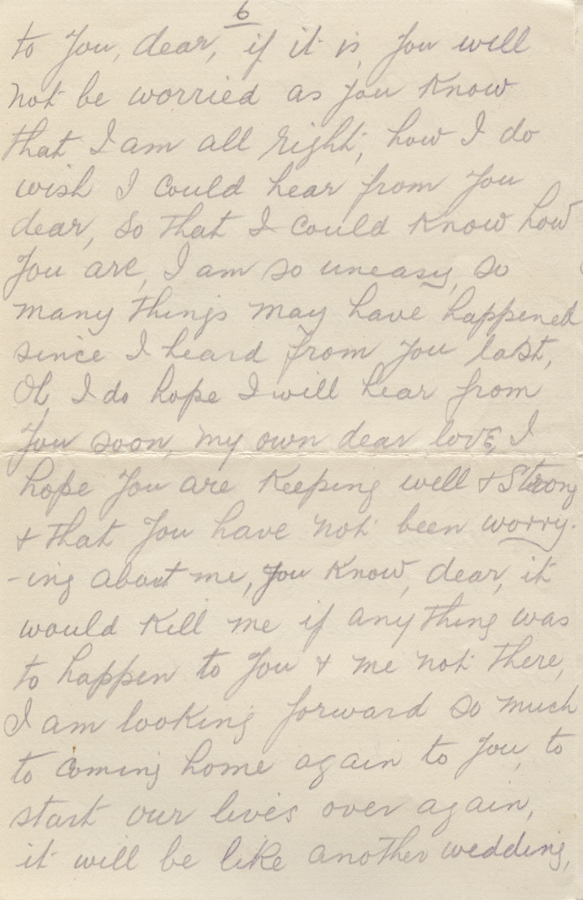 6
to you, dear, if it is, you will
not be worried as you know
that I am all right, how I do
wish I could hear from you
dear, so that I could know how
you are, I am so uneasy, so
many things may have happened
since I heard from you last,
Oh I do hope I will hear from
you soon, my own dear love, I
hope you are keeping well & strong
& that you have not been worry-
-ing about me, you know, dear, it
would kill me if anything was
to happen to you & me not there,
I am looking forward so much
to coming home again to you, to
start our lives over again,
it will be like another wedding,